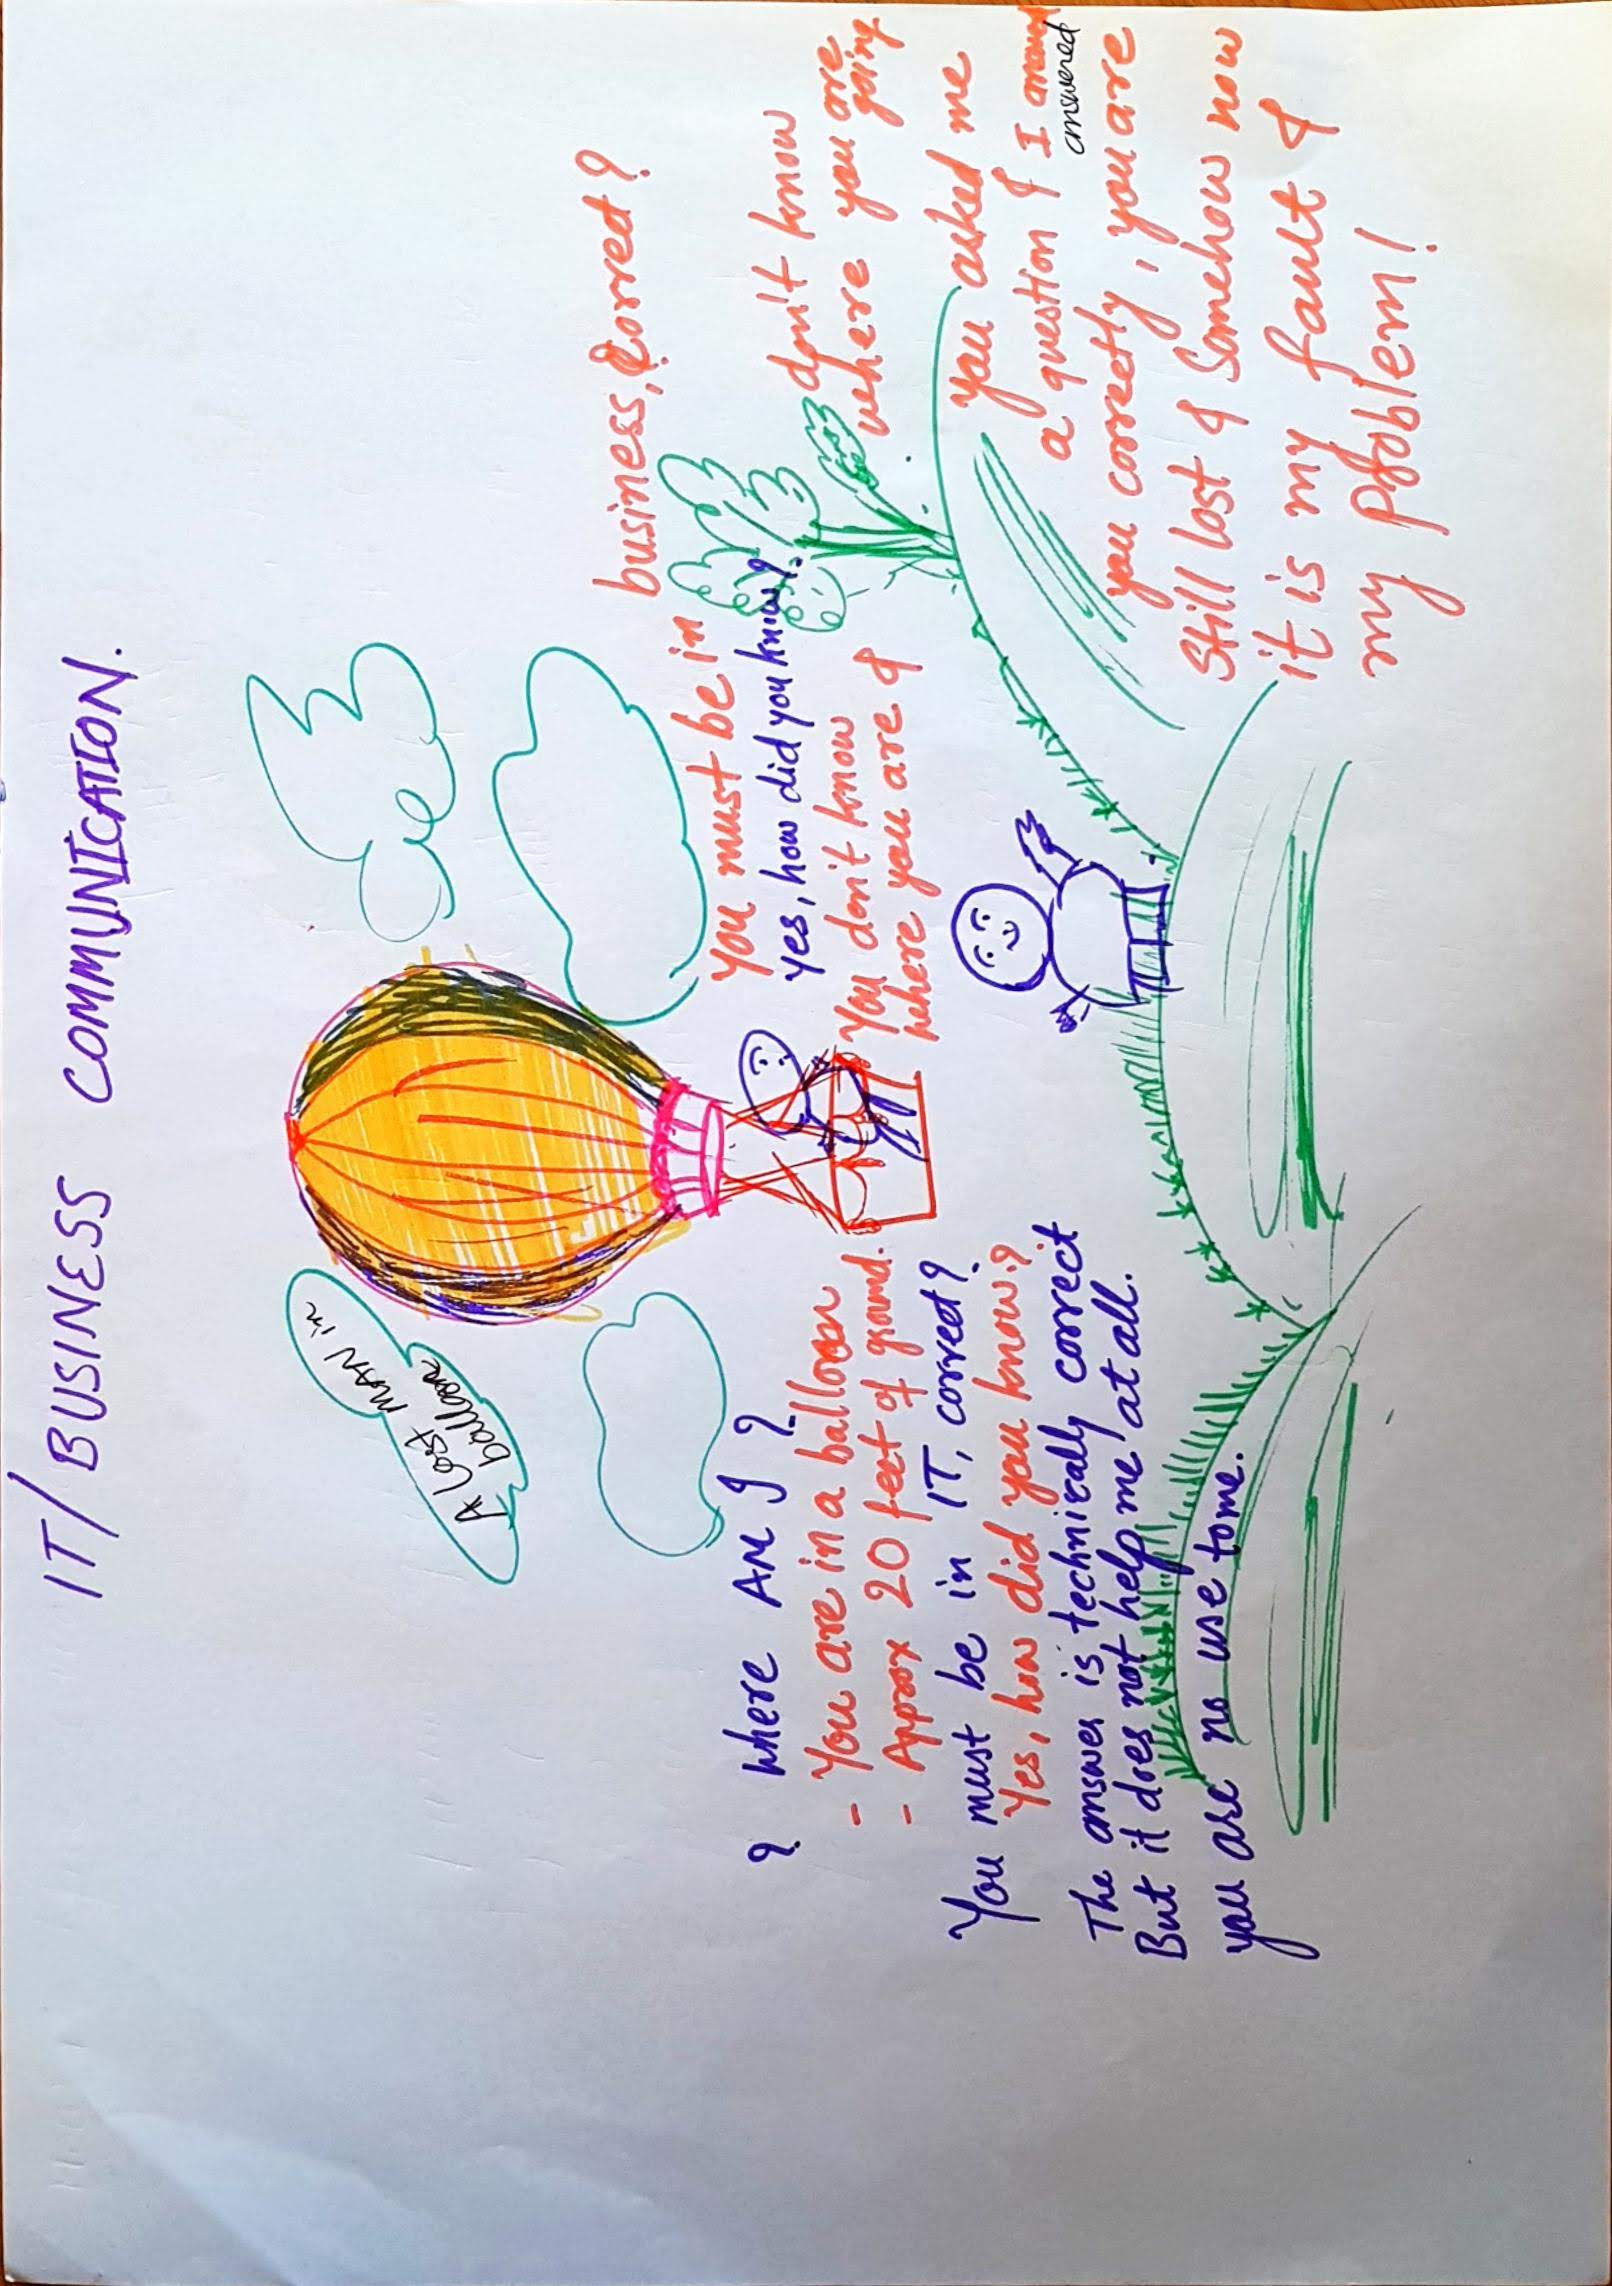 IT/BUSINESS COMMUNICATION.
A Lost MAN in
balloon
? Where AM I ?
- You are in a balloon
- Approx 20 feet of ground.
You must be in IT, correct?
Yes, how did you know?
The answer is technically correct
But it does not help me at all.
you are no use to me.
You must be in business, Correct?
yes, how did you know?
You don't know
where you are &
don't know
where you are
going
you asked me
a question & I answered
answered
you correctly, you are
Still lost & Somehow now
it is my fault &
my Problem!